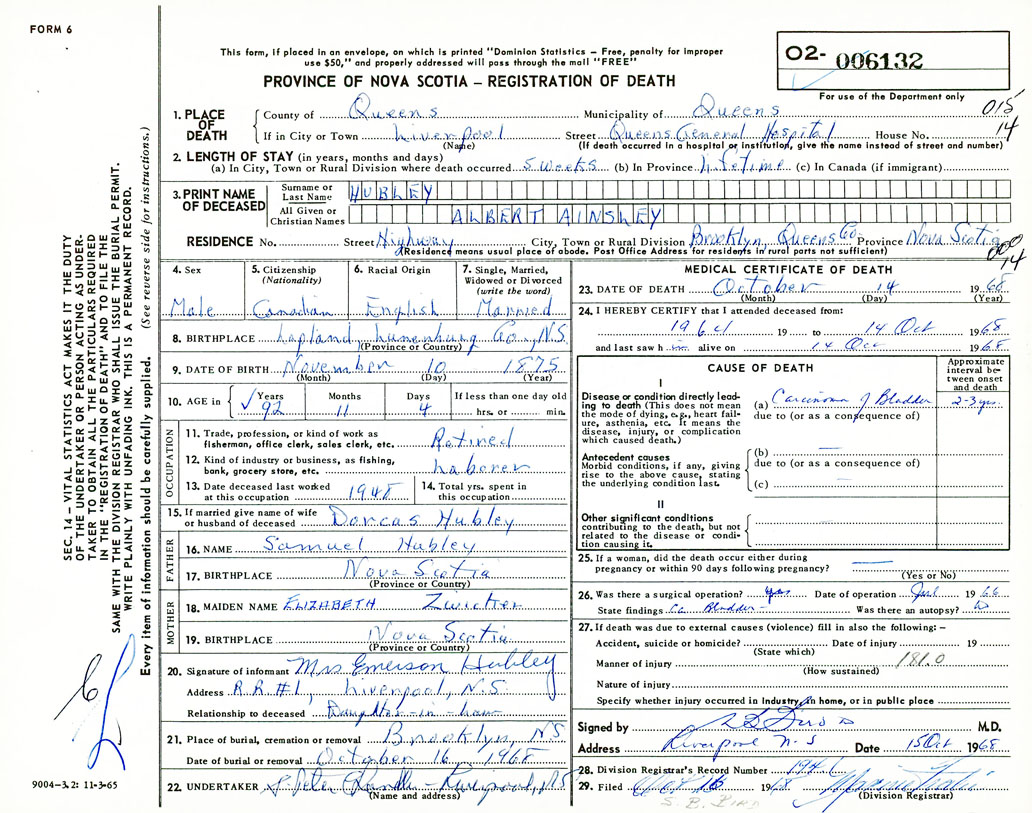 FORM 6
This form, if placed in an envelope, on which is printed "Dominion Statistics – Free, penalty for improper
use $50," and properly addressed will pass through the mail "FREE"
PROVINCE OF NOVA SCOTIA – REGISTRATION OF DEATH
O2- 006132
For use of the Department only
015
14
1. PLACE OF DEATH
County of Queens Municipality of Queens
If in City or Town Liverpool Street Queens General Hospital House No.
(Name) (If death occurred in a hospital or institution, give the name instead of street and number)
2. LENGTH OF STAY (in years, months and days)
(a) In City, Town or Rural Division where death occurred 5 weeks (b) In Province lifetime (c) In Canada (if immigrant)
3. PRINT NAME OF DECEASED
Surname or Last Name HUBLEY
All Given or Christian Names ALBERT AINSLEY
RESIDENCE No. Street Highway City, Town or Rural Division Brooklyn, Queens Co. Province Nova Scotia
(Residence means usual place of abode. Post Office Address for residents in rural parts not sufficient)
000
14
4. Sex 5. Citizenship (Nationality) 6. Racial Origin 7. Single, Married, Widowed or Divorced (write the word)
Male Canadian English Married
8. BIRTHPLACE Lapland Lunenburg Co., N.S.
(Province or Country)
9. DATE OF BIRTH November 10 1875
(Month) (Day) (Year)
10. AGE in Years Months Days If less than one day old
92 11 4 hrs. or min.
OCCUPATION
11. Trade, profession, or kind of work as fisherman, office clerk, sales clerk, etc. Retired
12. Kind of industry or business, as fishing, bank, grocery store, etc. Laborer
13. Date deceased last worked at this occupation 1948
14. Total yrs. spent in this occupation
15. If married give name of wife or husband of deceased Dorcas Hubley
FATHER
16. NAME Samuel Hubley
17. BIRTHPLACE Nova Scotia
(Province or Country)
MOTHER
18. MAIDEN NAME ELIZABETH Zwicker
19. BIRTHPLACE Nova Scotia
(Province or Country)
20. Signature of informant Mrs Emerson Hubley
Address R.R.#1, Liverpool, N.S.
Relationship to deceased Daughter-in-Law
21. Place of burial, cremation or removal Brooklyn, N.S
Date of burial or removal October 16, 1968
22. UNDERTAKER Liverpool, N.S
(Name and address)
MEDICAL CERTIFICATE OF DEATH
23. DATE OF DEATH October 14 1968
(Month) (Day) (Year)
24. I HEREBY CERTIFY that I attended deceased from:
1961 19 to 14 Oct 1968
and last saw him alive on 14 Oct 1968
CAUSE OF DEATH
Approximate interval between onset and death
I
Disease or condition directly leading to death (This does not mean the mode of dying, e.g., heart failure, asthenia, etc. It means the disease, injury, or complication which caused death.)
(a) Carcinoma of Bladder 2-3 yrs.
due to (or as a consequence of)
Antecedent causes
Morbid conditions, if any, giving rise to the above cause, stating the underlying condition last.
(b) —
due to (or as a consequence of)
(c) —
II
Other significant conditions contributing to the death, but not related to the disease or condition causing it.
25. If a woman, did the death occur either during
pregnancy or within 90 days following pregnancy? —
(Yes or No)
26. Was there a surgical operation? yes Date of operation 1966
State findings Ca Bladder - Was there an autopsy?
27. If death was due to external causes (violence) fill in also the following: –
Accident, suicide or homicide? Date of injury 19
(State which)
Manner of injury 181.0
(How sustained)
Nature of injury
Specify whether injury occurred in Industry, in home, or in public place
Signed by M.D.
Address Liverpool N-S Date 15 Oct 1968
28. Division Registrar's Record Number
29. Filed Oct 16 1968
(Division Registrar)
SEC. 14 – VITAL STATISTICS ACT MAKES IT THE DUTY
OF THE UNDERTAKER OR PERSON ACTING AS UNDER-
TAKER TO OBTAIN ALL THE PARTICULARS REQUIRED
IN THE "REGISTRATION OF DEATH" AND TO FILE THE
SAME WITH THE DIVISION REGISTRAR WHO SHALL ISSUE THE BURIAL PERMIT.
WRITE PLAINLY WITH UNFADING INK. THIS IS A PERMANENT RECORD.
Every item of information should be carefully supplied. (See reverse side for instructions.)
9004-3.2: 11-3-65